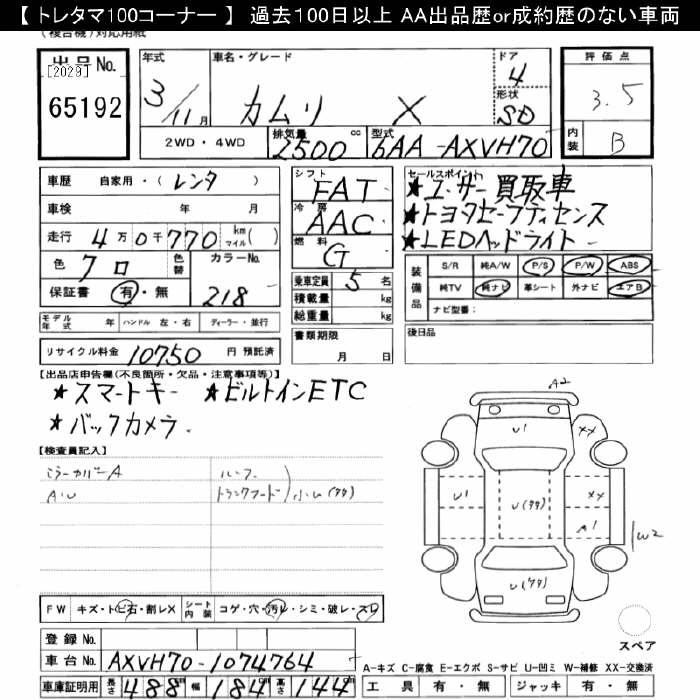 【 トレタマ100コーナー 】 過去100日以上 AA出品歴or成約歴のない車両
(複合機)対応用紙
出品No. [2029] 65192
年式 3/11月
車名・グレード カムリ X
ドア 4
形状 SD
評価点 3.5
内装 B
2WD・4WD 排気量 2500cc 型式 6AA-AXVH70
車歴 自家用・(レンタ)
車検 年 月
走行 4万0千770 km マイル( )
色 クロ 色替 カラーNo. 218
保証書 有・無
シフト FAT
冷房 AAC
燃料 G
乗車定員 5名
積載量 kg
総重量 kg
セールスポイント
★ユーザー買取車
★トヨタセーフティセンス
★LEDヘッドライト
装備品 S/R 純A/W P/S P/W ABS
純TV 純ナビ 革シート 外ナビ エアB
ナビ型番:
モデル年式 年 ハンドル 左・右 ディーラー・並行
書類期限 月 日
後日品
リサイクル料金 10750 円 預託済
【出品店申告欄(不良箇所・欠品・注意事項等)】
★スマートキー ★ビルトインETC
★バックカメラ
【検査員記入】
ミラーカバーA ルーフ
AU トランクフード 小ム(タタ)
A2
U1 XX
U1 U(タタ) XX
A1 W2
U(タタ)
スペア
FW キズ・トビ石・割レX シート内装 コゲ・穴・汚レ・シミ・破レ・スレ
登録No.
車台No. AXVH70-1074764
車庫証明用 長さ 488 幅 184 高さ 144
A-キズ C-腐食 E-エクボ S-サビ U-凹ミ W-補修 XX-交換済
工具 有・無 ジャッキ 有・無